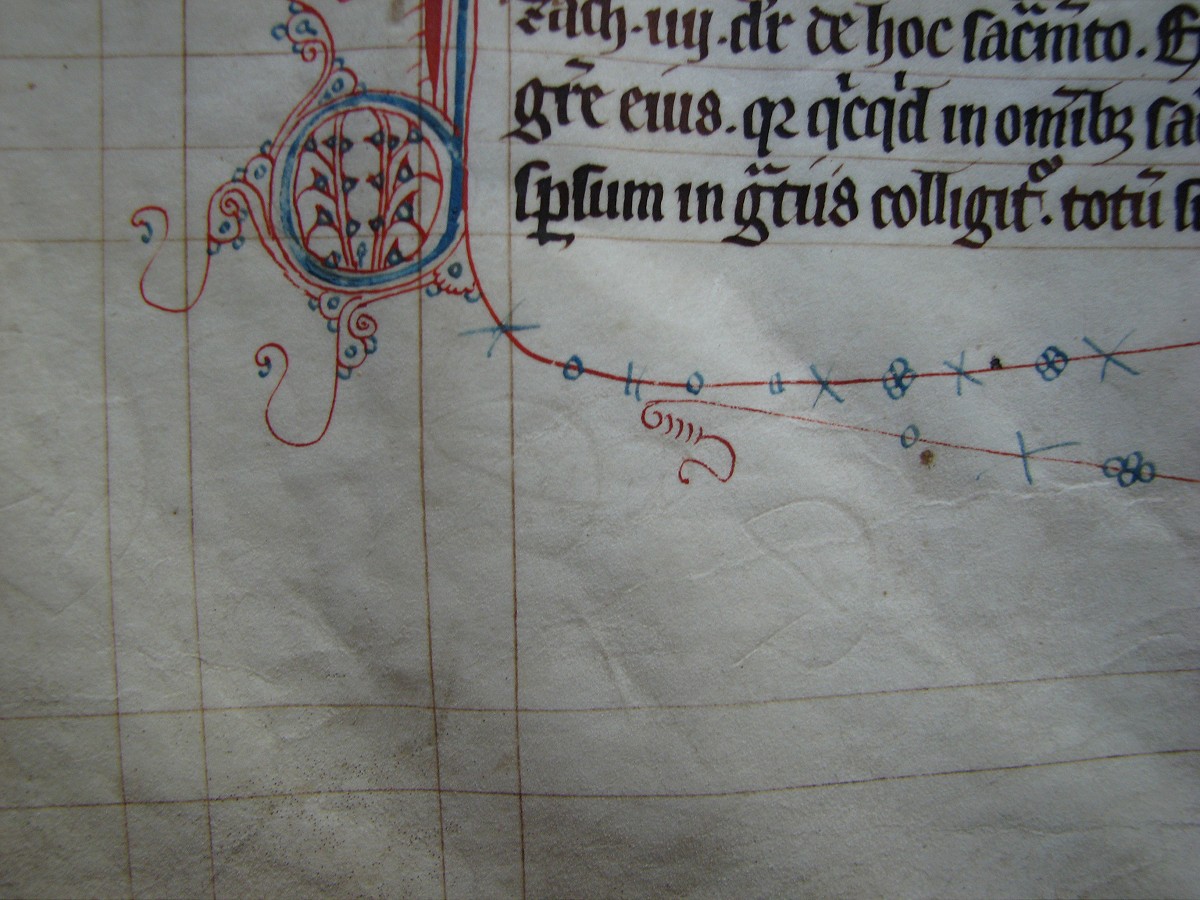 zach·iiij·dr̄ de hoc sac̄m̄to. E
gr̄e eius. qꝛ qͥcqͥd in om̄ibꝫ sa
ip̄sum in gr̄c̄iis colligit᷑. totū s